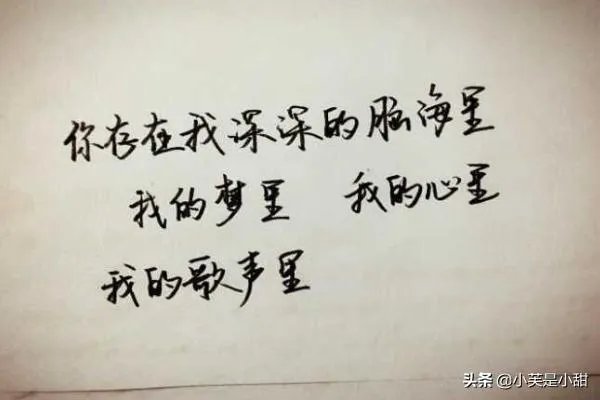 你存在我深深的脑海里
我的梦里 我的心里
我的歌声里
头条 @小芙是小甜